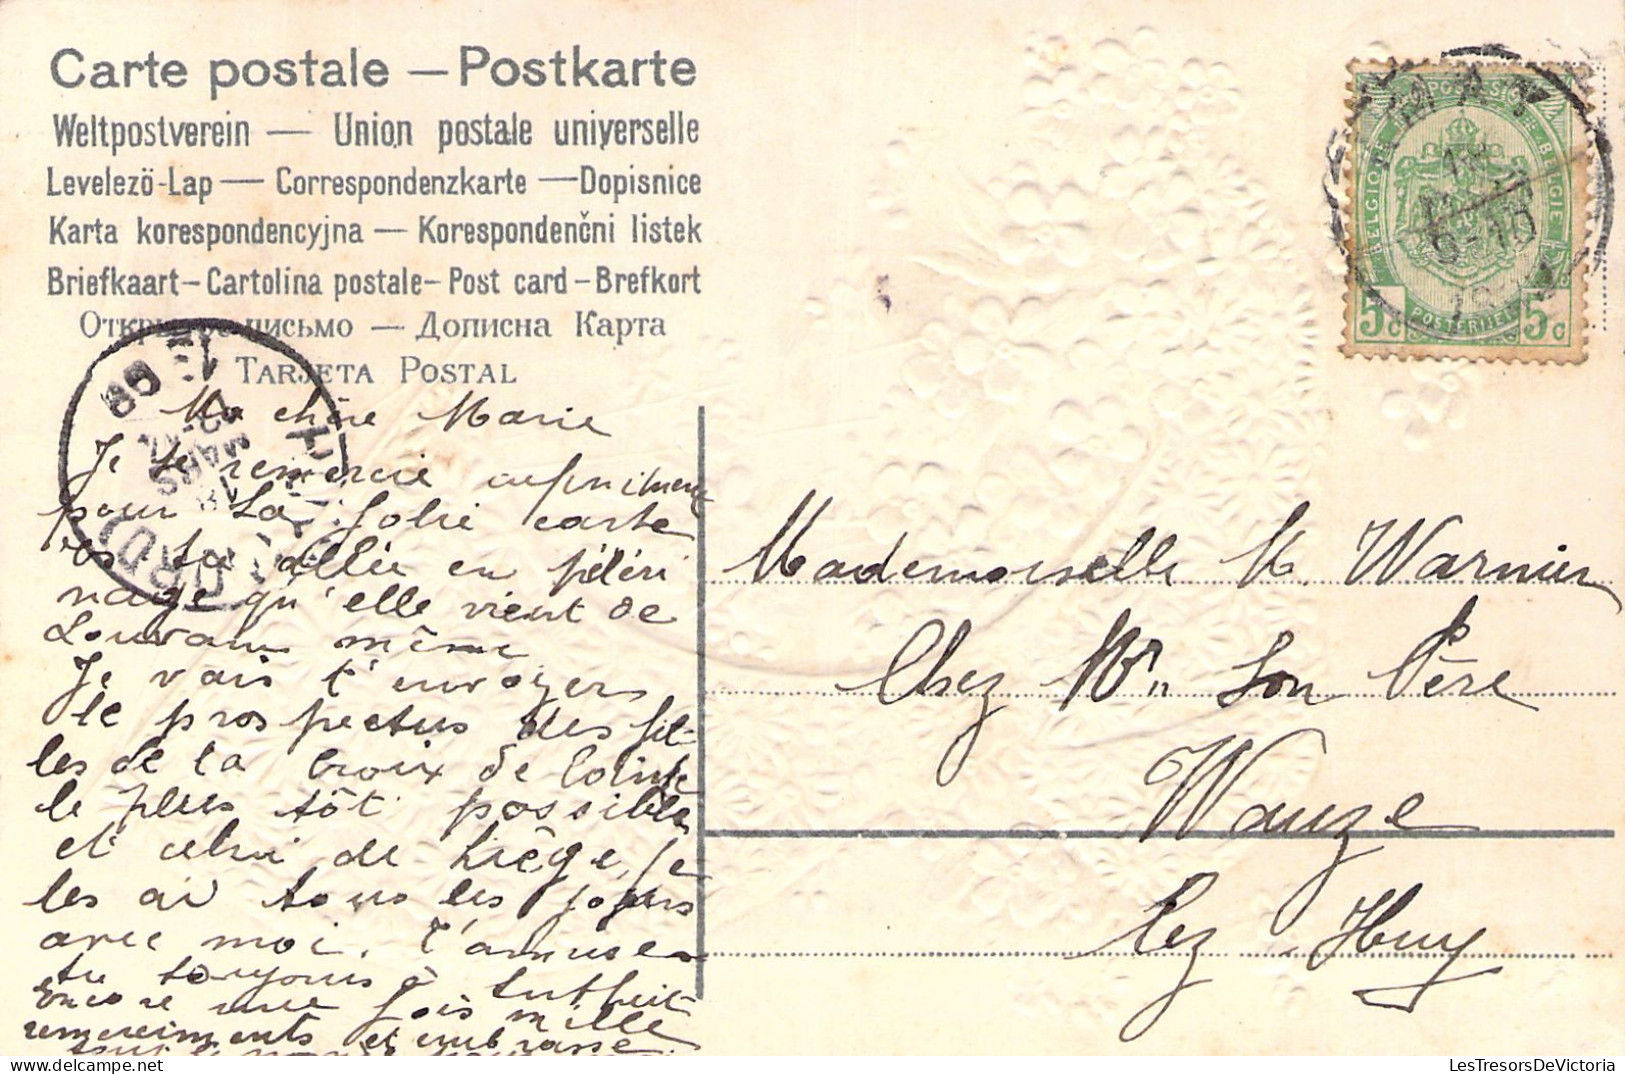 Carte postale — Postkarte
Weltpostverein — Union postale universelle
Levelezö-Lap — Correspondenzkarte — Dopisnice
Karta korespondencyjna — Korespondenčni listek
Briefkaart – Cartolina postale – Post card – Brefkort
письмо — Дописна Карта
TARJETA POSTAL
Ma chère Marie
Je te remercie
pour la jolie carte
es tu allée en péléri
nage qu'elle vient de
Louvain même
Je vais t'envoyers
le prospectus des fil-
les de la Croix de
le plus tôt possible
et celui de Liège, je
les ai tous les jours
avec moi. t'amuses
tu toujours à
Encore une fois mille
remerciments et embrasse
Mademoiselle M. Warnier
Chez Mr. Son Père
Wanze
lez Huy
BELGIQUE BELGIE
POSTERIJEN
5c 5c
9-10
12
MARS
08
LesTresorsDeVictoria